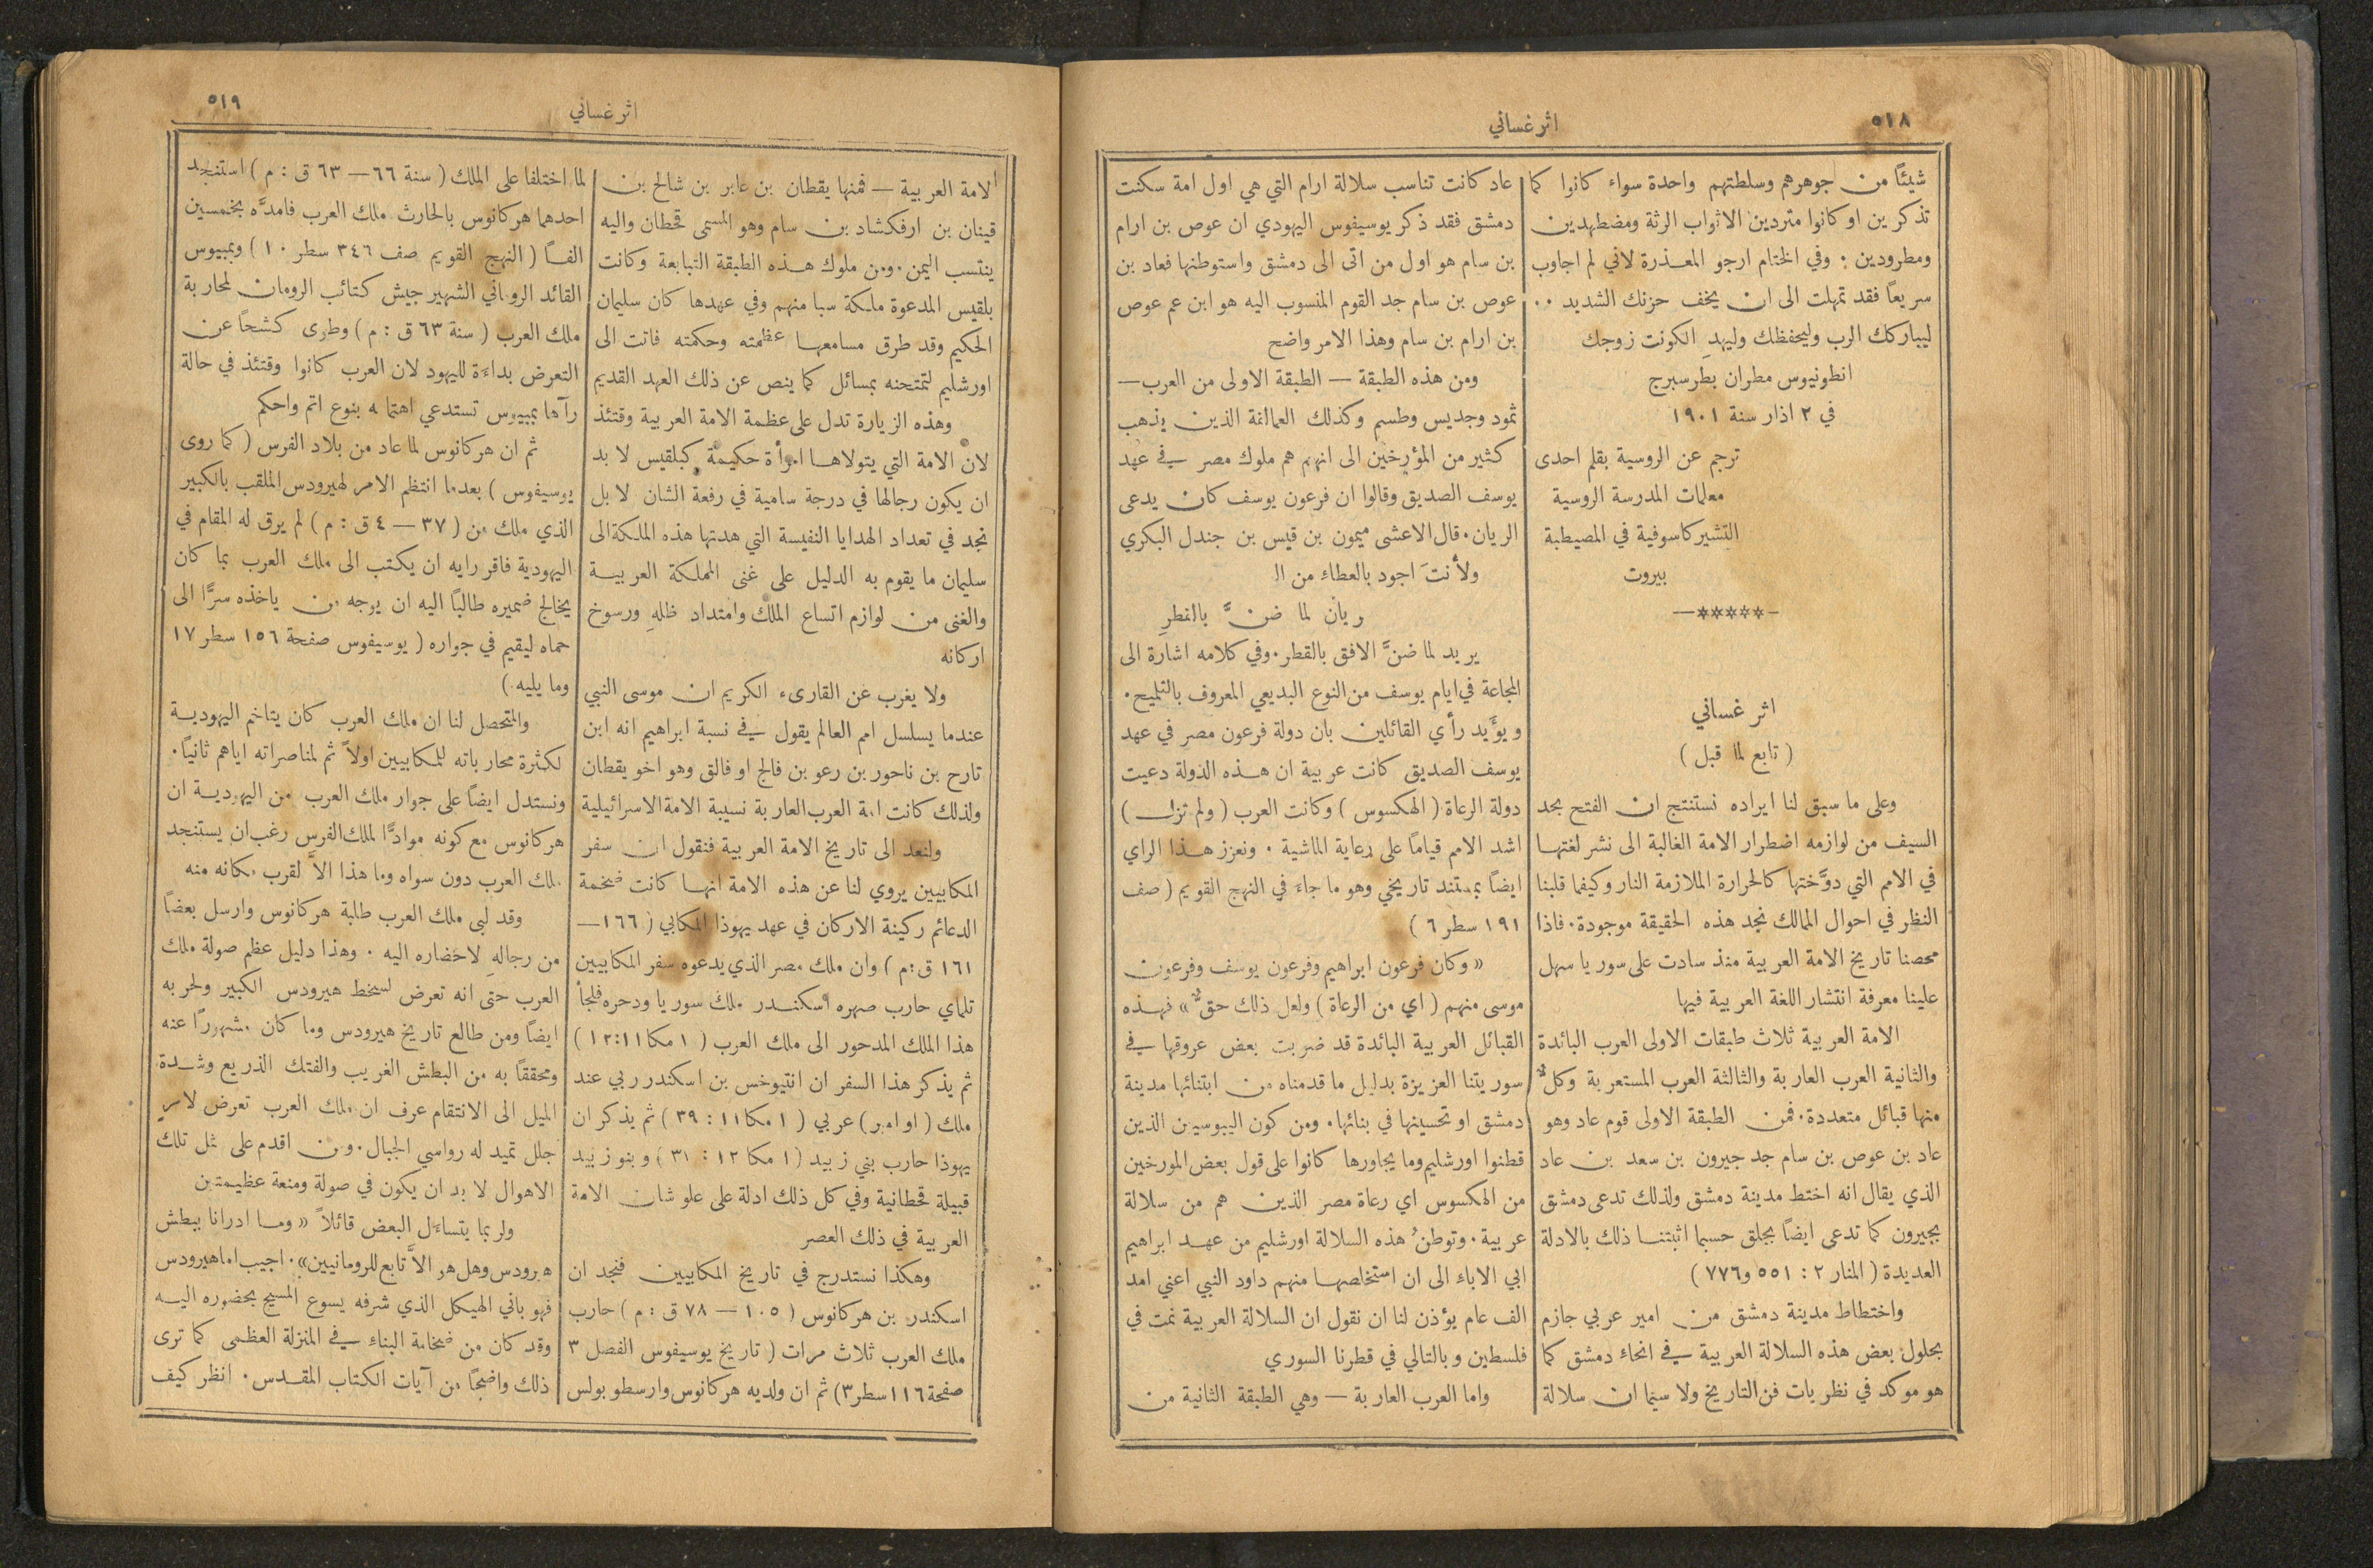 ٥١٨
اثر غساني
شيئًا من جوهرهم وسلطتهم واحدة سواء كانوا كما
تذكرين او كانوا متردين الاثواب الرثة ومضطهدين
ومطرودين . وفي الختام ارجو المعذرة لاني لم اجاوب
سريعًا فقد تمهلت الى ان يخف حزنك الشديد ..
ليباركك الرب وليحفظك وليهدِ الكونت زوجك
انطونيوس مطران بطرسبرج
في ٢ اذار سنة ١٩٠١
ترجم عن الروسية بقلم احدى
معلمات المدرسة الروسية
التشيركاسوفية في المصيطبة
بيروت
—☆☆☆☆☆—
اثر غساني
( تابع لما قبل )
وعلى ما سبق لنا ايراده نستنتج ان الفتح بحد
السيف من لوازمه اضطرار الامة الغالبة الى نشر لغتها
في الامم التي دوَّختها كالحرارة الملازمة النار وكيفما قلبنا
النظر في احوال الممالك نجد هذه الحقيقة موجودة. فاذا
محصنا تاريخ الامة العربية منذ سادت على سوريا سهل
علينا معرفة انتشار اللغة العربية فيها
الامة العربية ثلاث طبقات الاولى العرب البائدة
والثانية العرب العاربة والثالثة العرب المستعربة وكلٌّ
منها قبائل متعددة. فمن الطبقة الاولى قوم عاد وهو
عاد بن عوص بن سام جد جيرون بن سعد بن عاد
الذي يقال انه اختط مدينة دمشق ولذلك تدعى دمشق
بجيرون كما تدعى ايضًا بجلق حسبما اثبتنا ذلك بالادلة
العديدة ( المنار ٢ : ٥٥١ و٧٧٦ )
واختطاط مدينة دمشق من امير عربي جازم
بحلول بعض هذه السلالة العربية في انحاء دمشق كما
هو موكد في نظريات فن التاريخ ولا سيما ان سلالة
عاد كانت تناسب سلالة ارام التي هي اول امة سكنت
دمشق فقد ذكر يوسيفوس اليهودي ان عوص بن ارام
بن سام هو اول من اتى الى دمشق واستوطنها فعاد بن
عوص بن سام جد القوم المنسوب اليه هو ابن عم عوص
بن ارام بن سام وهذا الامر واضح
ومن هذه الطبقة — الطبقة الاولى من العرب—
ثمود وجديس وطسم وكذلك العمالقة الذين يذهب
كثير من المؤرخين الى انهم هم ملوك مصر في عهد
يوسف الصديق وقالوا ان فرعون يوسف كان يدعى
الريان. قال الاعشى ميمون بن قيس بن جندل البكري
ولأنتَ اجود بالعطاء من ال
ريان لما ضنَّ بالمطرِ
يريد لما ضنَّ الافق بالقطر. وفي كلامه اشارة الى
المجاعة في ايام يوسف من النوع البديعي المعروف بالتلميح.
ويؤيد رأي القائلين بان دولة فرعون مصر في عهد
يوسف الصديق كانت عربية ان هذه الدولة دعيت
دولة الرعاة ( الهكسوس ) وكانت العرب ( ولم تزل )
اشد الامم قيامًا على رعاية الماشية . ونعزز هذا الراي
ايضًا بمستند تاريخي وهو ما جاء في النهج القويم ( صف
١٩١ سطر ٦ )
« وكان فرعون ابراهيم وفرعون يوسف وفرعون
موسى منهم ( اي من الرعاة ) ولعل ذلك حقٌّ » فهذه
القبائل العربية البائدة قد ضربت بعض عروقها في
سوريتنا العزيزة بدليل ما قدمناه من ابتنائها مدينة
دمشق او تحسينها في بنائها. ومن كون اليبوسيين الذين
قطنوا اورشليم وما يجاورها كانوا على قول بعض المورخين
من الهكسوس اي رعاة مصر الذين هم من سلالة
عربية. وتوطنُ هذه السلالة اورشليم من عهد ابراهيم
ابي الاباء الى ان استخلصها منهم داود النبي اعني امد
الف عام يؤذن لنا ان نقول ان السلالة العربية نمت في
فلسطين وبالتالي في قطرنا السوري
واما العرب العاربة — وهي الطبقة الثانية من
اثر غساني
٥١٩
الامة العربية — فمنها يقطان بن عابر بن شالح بن
قينان بن ارفكشاد بن سام وهو المسمى قحطان واليه
ينتسب اليمن. ومن ملوك هذه الطبقة التبابعة وكانت
بلقيس المدعوة ملكة سبا منهم وفي عهدها كان سليمان
الحكيم وقد طرق مسامعها عظمته وحكمته فاتت الى
اورشليم لتمتحنه بمسائل كما ينص عن ذلك العهد القديم
وهذه الزيارة تدل على عظمة الامة العربية وقتئذ
لان الامة التي يتولاها امرأة حكيمة كبلقيس لا بد
ان يكون رجالها في درجة سامية في رفعة الشان لا بل
نجد في تعداد الهدايا النفيسة التي هدتها هذه الملكة الى
سليمان ما يقوم به الدليل على غنى المملكة العربية
والغنى من لوازم اتساع الملك وامتداد ظلهِ ورسوخ
اركانه
ولا يغرب عن القارىء الكريم ان موسى النبي
عندما يسلسل امم العالم يقول في نسبة ابراهيم انه ابن
تارح بن ناحور بن رعو بن فالج او فالق وهو اخو يقطان
ولذلك كانت امة العرب العاربة نسيبة الامة الاسرائيلية
ولنعد الى تاريخ الامة العربية فنقول ان سفر
المكابيين يروي لنا عن هذه الامة انها كانت ضخمة
الدعائم ركينة الاركان في عهد يهوذا المكابي ( ١٦٦—
١٦١ ق:م ) وان ملك مصر الذي يدعوه سفر المكابيين
تلماي حارب صهره اسكندر ملك سوريا ودحره فلجأ
هذا الملك المدحور الى ملك العرب ( ١ مكا١١:١٢ )
ثم يذكر هذا السفر ان انتيوخس بن اسكندر ربي عند
ملك ( او امير ) عربي ( ١ مكا١١ : ٣٩ ) ثم يذكر ان
يهوذا حارب بني زبيد ( ١ مكا ١٢ : ٣١ ) وبنو زبيد
قبيلة قحطانية وفي كل ذلك ادلة على علو شان الامة
العربية في ذلك العصر
وهكذا نستدرج في تاريخ المكابيين فنجد ان
اسكندر بن هركانوس ( ١٠٥ — ٧٨ ق : م ) حارب
ملك العرب ثلاث مرات ( تاريخ يوسيفوس الفصل ٣
صفحة ١١٦ سطر٣) ثم ان ولديه هركانوس وارسطوبولس
لما اختلفا على الملك ( سنة ٦٦ — ٦٣ ق : م ) استنجد
احدهما هركانوس بالحارث ملك العرب فامدَّه بخمسين
الفًا ( النهج القويم صف ٣٤٦ سطر ١٠ ) وبمبيوس
القائد الروماني الشهير جيش كتائب الرومان لمحاربة
ملك العرب ( سنة ٦٣ ق : م ) وطوى كشحًا عن
التعرض بداءة لليهود لان العرب كانوا وقتئذ في حالة
رآها بمبيوس تستدعي اهتمامه بنوع اتم واحكم
ثم ان هركانوس لما عاد من بلاد الفرس ( كما روى
يوسيفوس ) بعدما انتظم الامر لهيرودس الملقب بالكبير
الذي ملك من ( ٣٧ — ٤ ق : م ) لم يرق له المقام في
اليهودية فاقر رايه ان يكتب الى ملك العرب بما كان
يخالج ضميره طالبًا اليه ان يوجه من ياخذه سرًّا الى
حماه ليقيم في جواره ( يوسيفوس صفحة ١٥٦ سطر ١٧
وما يليه )
والمتحصل لنا ان ملك العرب كان يتاخم اليهودية
لكثرة محارباته للمكابيين اولاً ثم لمناصراته اياهم ثانيًا.
ونستدل ايضًا على جوار ملك العرب من اليهودية ان
هركانوس مع كونه موادًّا لملك الفرس رغب ان يستنجد
ملك العرب دون سواه وما هذا الاَّ لقرب مكانه منه
وقد لبى ملك العرب طلبة هركانوس وارسل بعضًا
من رجالهِ لاحضاره اليه . وهذا دليل عظم صولة ملك
العرب حتى انه تعرض لسخط هيرودس الكبير ولحربه
ايضًا ومن طالع تاريخ هيرودس وما كان مشهورًا عنه
ومحققًا به من البطش الغريب والفتك الذريع وشدة
الميل الى الانتقام عرف ان ملك العرب تعرض لامرٍ
جلل تميد له رواسي الجبال. ومن اقدم على مثل تلك
الاهوال لا بد ان يكون في صولة ومنعة عظيمتين
ولربما يتساءل البعض قائلاً « وما ادرانا ببطش
هيرودس وهل هو الاَّ تابع للرومانيين». اجيب اما هيرودس
فهو باني الهيكل الذي شرفه يسوع المسيح بحضوره اليه
وقد كان من ضخامة البناء في المنزلة العظمى كما ترى
ذلك واضحًا من آيات الكتاب المقدس. انظر كيف